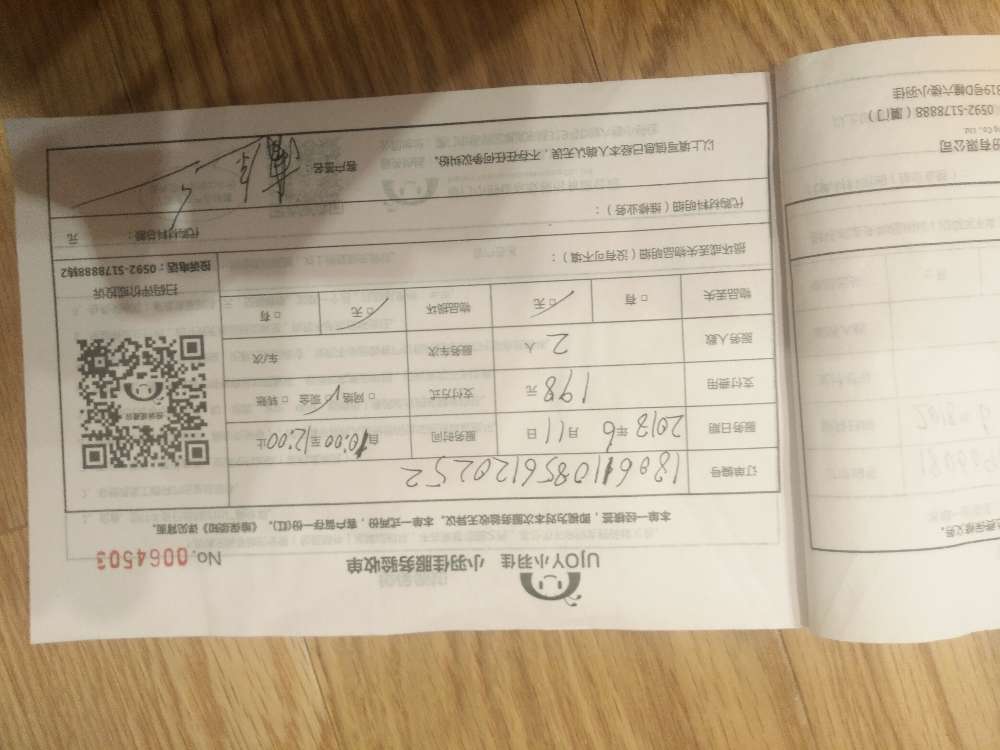 UJOY小羽佳 小羽佳服务验收单
No. 0064503
本单一经楼签，即视为对本次服务验收无异议。本单一式两份，客户留存一份(红)。《维保须知》详见背面。
订单编号 180611085612020252
服务日期 2018年6月11日 服务时间 自10:00至12:00止
支付费用 198元 支付方式 □网络 □现金 □转账
服务人数 2人 服务车次 车/次
物品丢失 □有 □无 物品损坏 □无 □有
损坏或丢失物品明细（没有可不填）：
扫码评价或投诉
投诉电话：0592-5178888转2
代购材料明细（维修业务）：
代购材料总额： 元
以上填写信息已经本人确认无误，不存在任何争议纠纷。 客户签名：
份有限公司
0592-5178888（厦门）
819号D幢六楼小羽佳